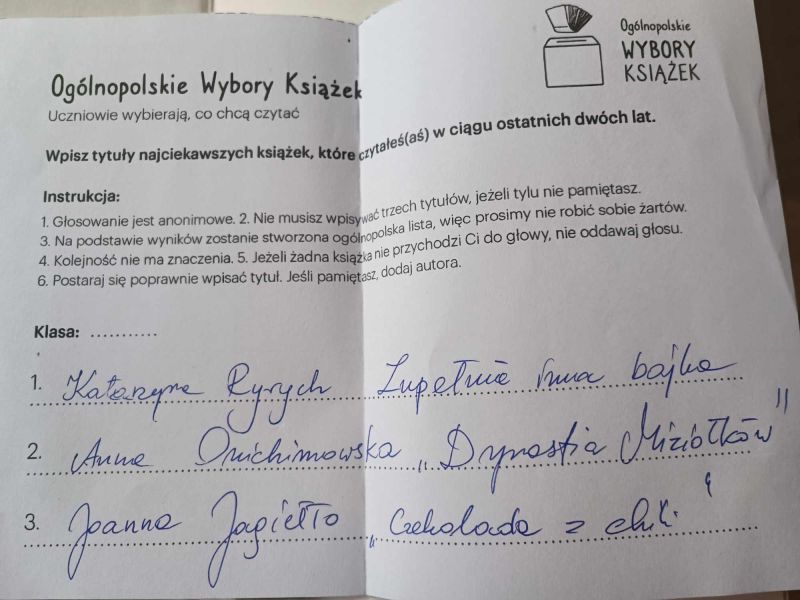 Ogólnopolskie
WYBORY
KSIĄŻEK
Ogólnopolskie Wybory Książek
Uczniowie wybierają, co chcą czytać
Wpisz tytuły najciekawszych książek, które czytałeś(aś) w ciągu ostatnich dwóch lat.
Instrukcja:
1. Głosowanie jest anonimowe. 2. Nie musisz wpisywać trzech tytułów, jeżeli tylu nie pamiętasz.
3. Na podstawie wyników zostanie stworzona ogólnopolska lista, więc prosimy nie robić sobie żartów.
4. Kolejność nie ma znaczenia. 5. Jeżeli żadna książka nie przychodzi Ci do głowy, nie oddawaj głosu.
6. Postaraj się poprawnie wpisać tytuł. Jeśli pamiętasz, dodaj autora.
Klasa: ...........
1. Katarzyna Ryrych Zupełnie inna bajka
2. Anna Onichimowska „Dynastia Miziołków"
3. Joanna Jagiełło „Czekolada z chili"